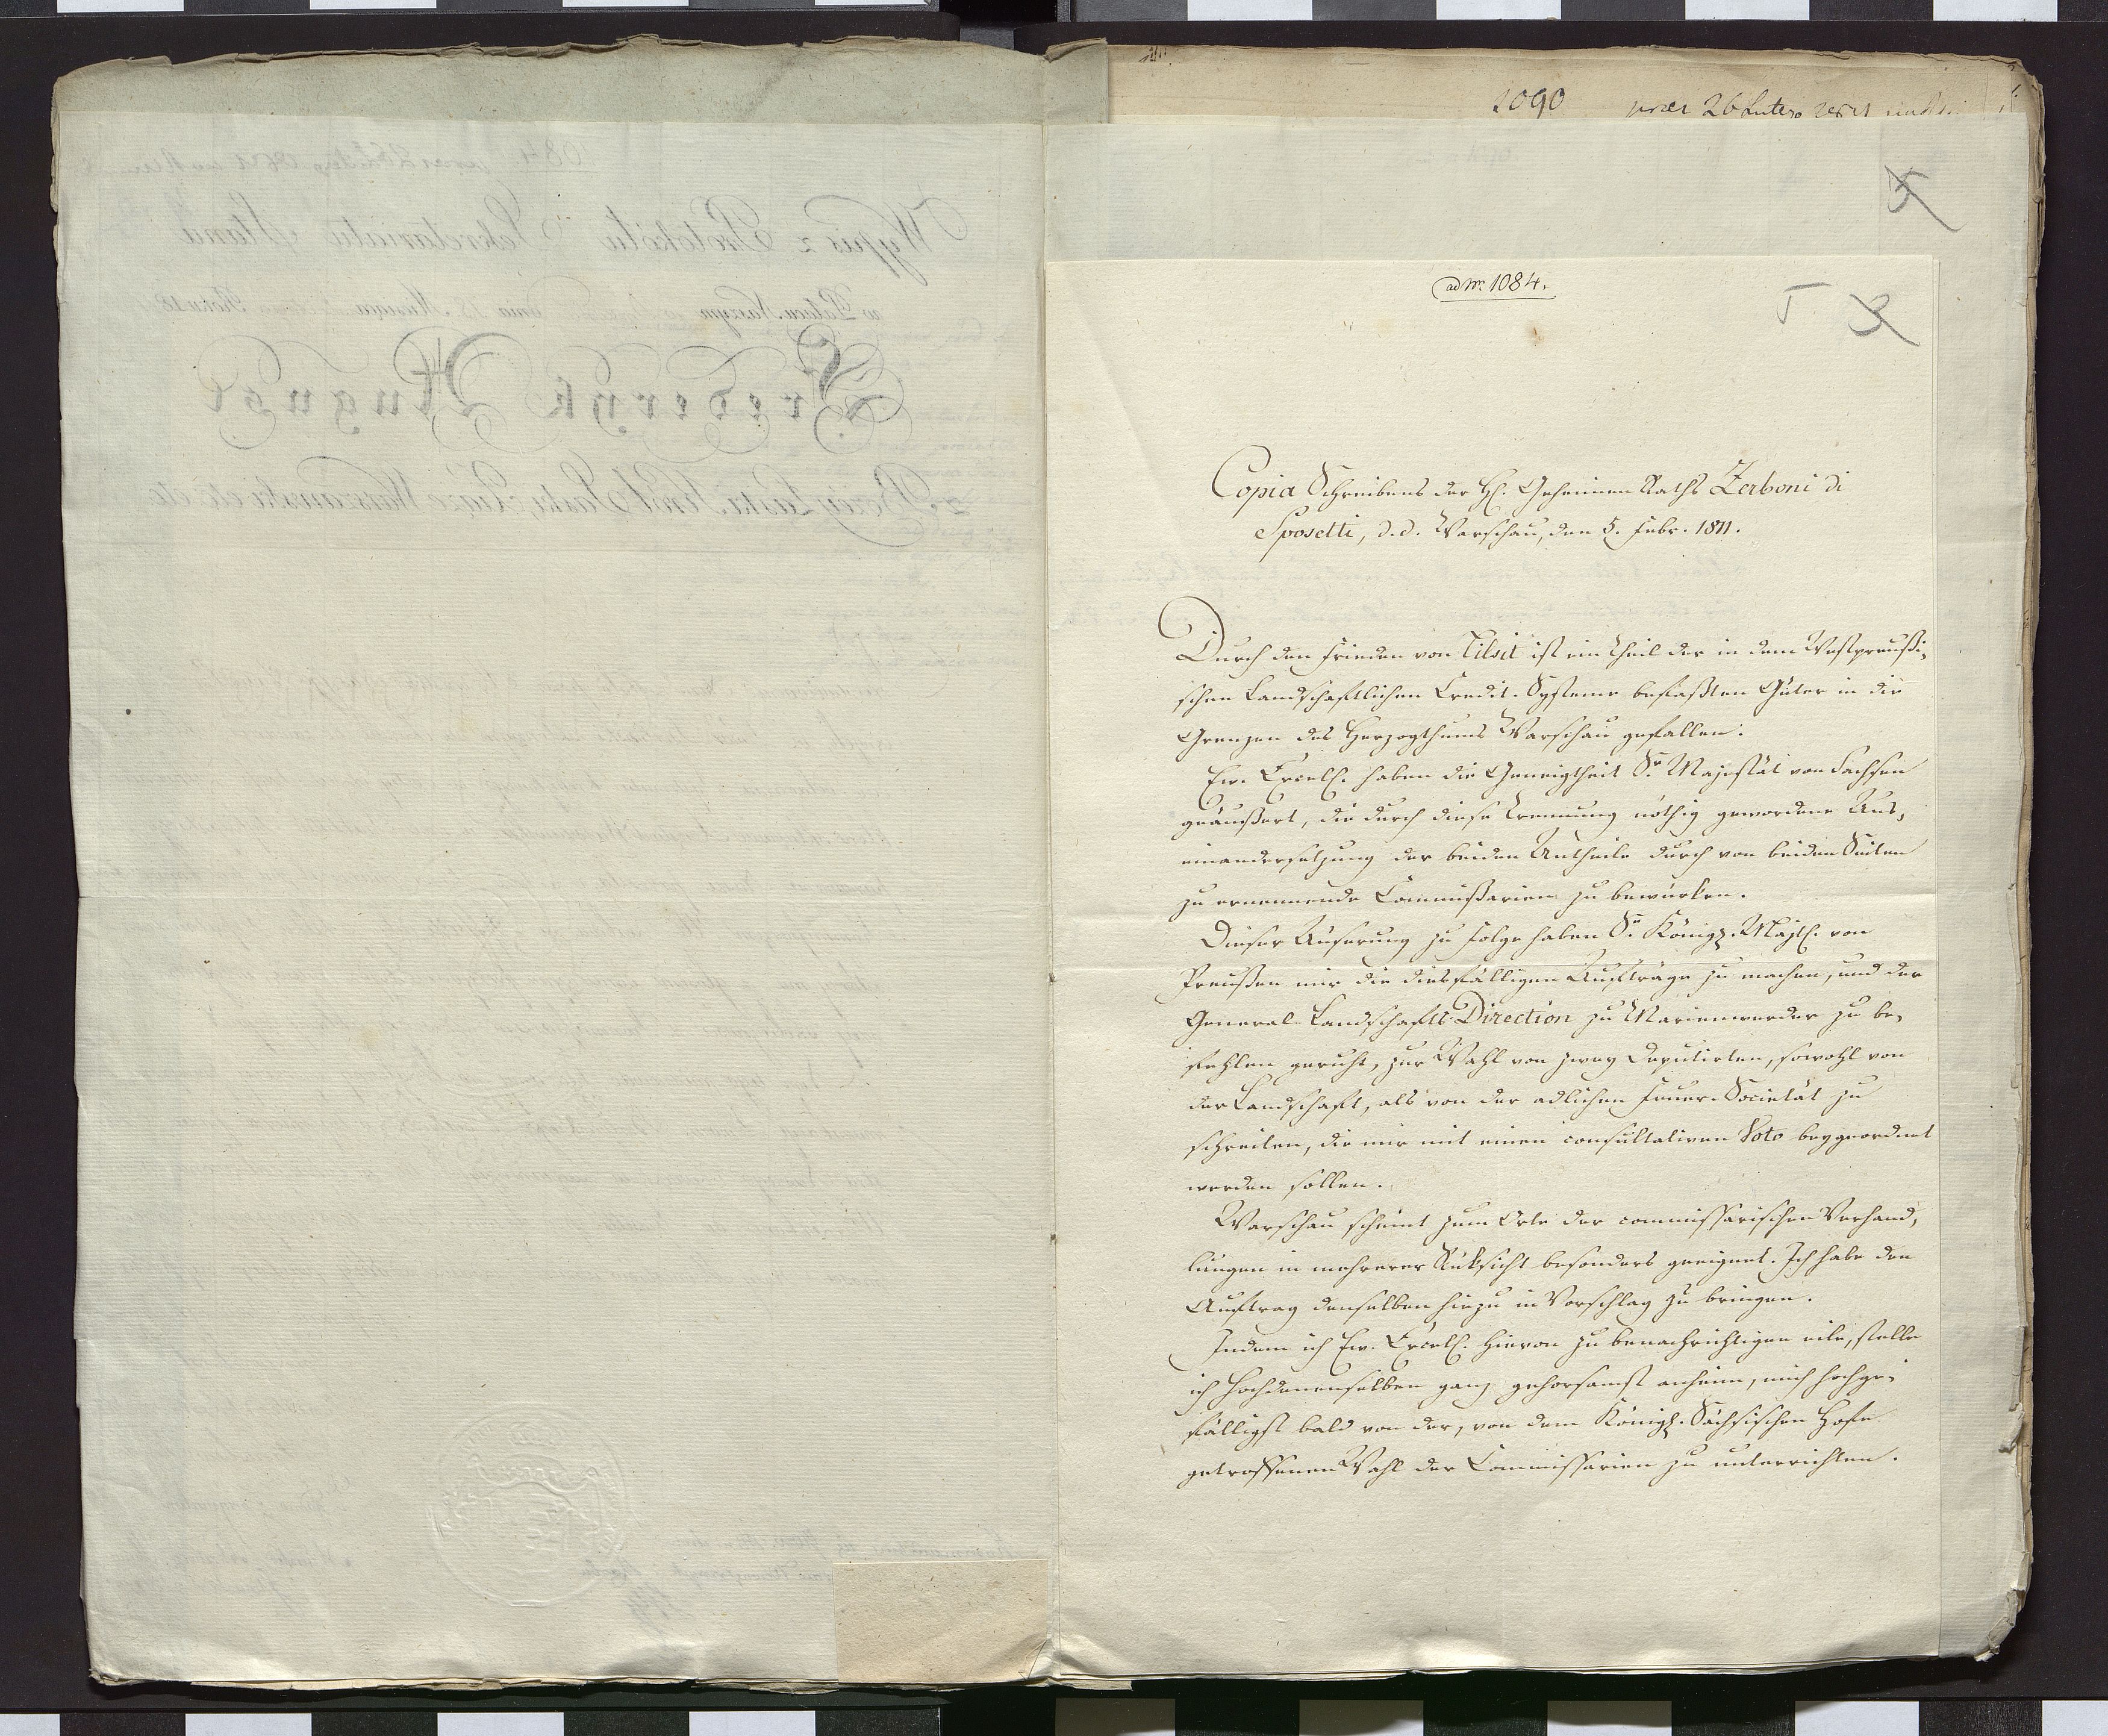 2090 præs 26 Lutego 1811
5
ad Nr. 1084.
5 3
Copia Schreibens des H. Geheimen Raths Zerboni di
Sposetti, d.d. Warschau, den 5. Febr. 1811.
Durch den Frieden von Tilsit ist ein Theil der in dem Westpreußi-
schen Landschaftlichen Credit-Systeme befaßten Güter in die
Grenzen des Herzogthums Warschau gefallen.
Ew. Excell. haben die Geneigtheit Sr. Majestät von Sachsen
geäußert, die durch diese Trennung nöthig gewordene Aus-
einandersetzung der beiden Antheile durch von beiden Seiten
zu ernennende Commißarien zu bewürken.
Dieser Äuserung zu Folge haben Se. Königl. Majest. von
Preußen mir die diesfälligen Aufträge zu machen, und der
General-Landschafts-Direction zu Marienwerder zu be-
fehlen geruht, zur Wahl von zwey Deputirten, sowohl von
der Landschaft, als von der adlichen Feuer-Societät zu
schreiten, die mir mit einen consultativen Voto beygeordnet
werden sollen.
Warschau scheint zum Orte der commissarischen Verhand-
lungen in mehrerer Rüksicht besonders geeignet. Ich habe den
Auftrag denselben hiezu in Vorschlag zu bringen.
Indem ich Ew. Excell. hievon zu benachrichtigen eile, stelle
ich Hochdenenselben ganz gehorsamst anheim, mich hochge-
fälligst bald von der, von dem Königl. Sächsischen Hofe
getroffenen Wahl der Commissarien zu unterrichten.